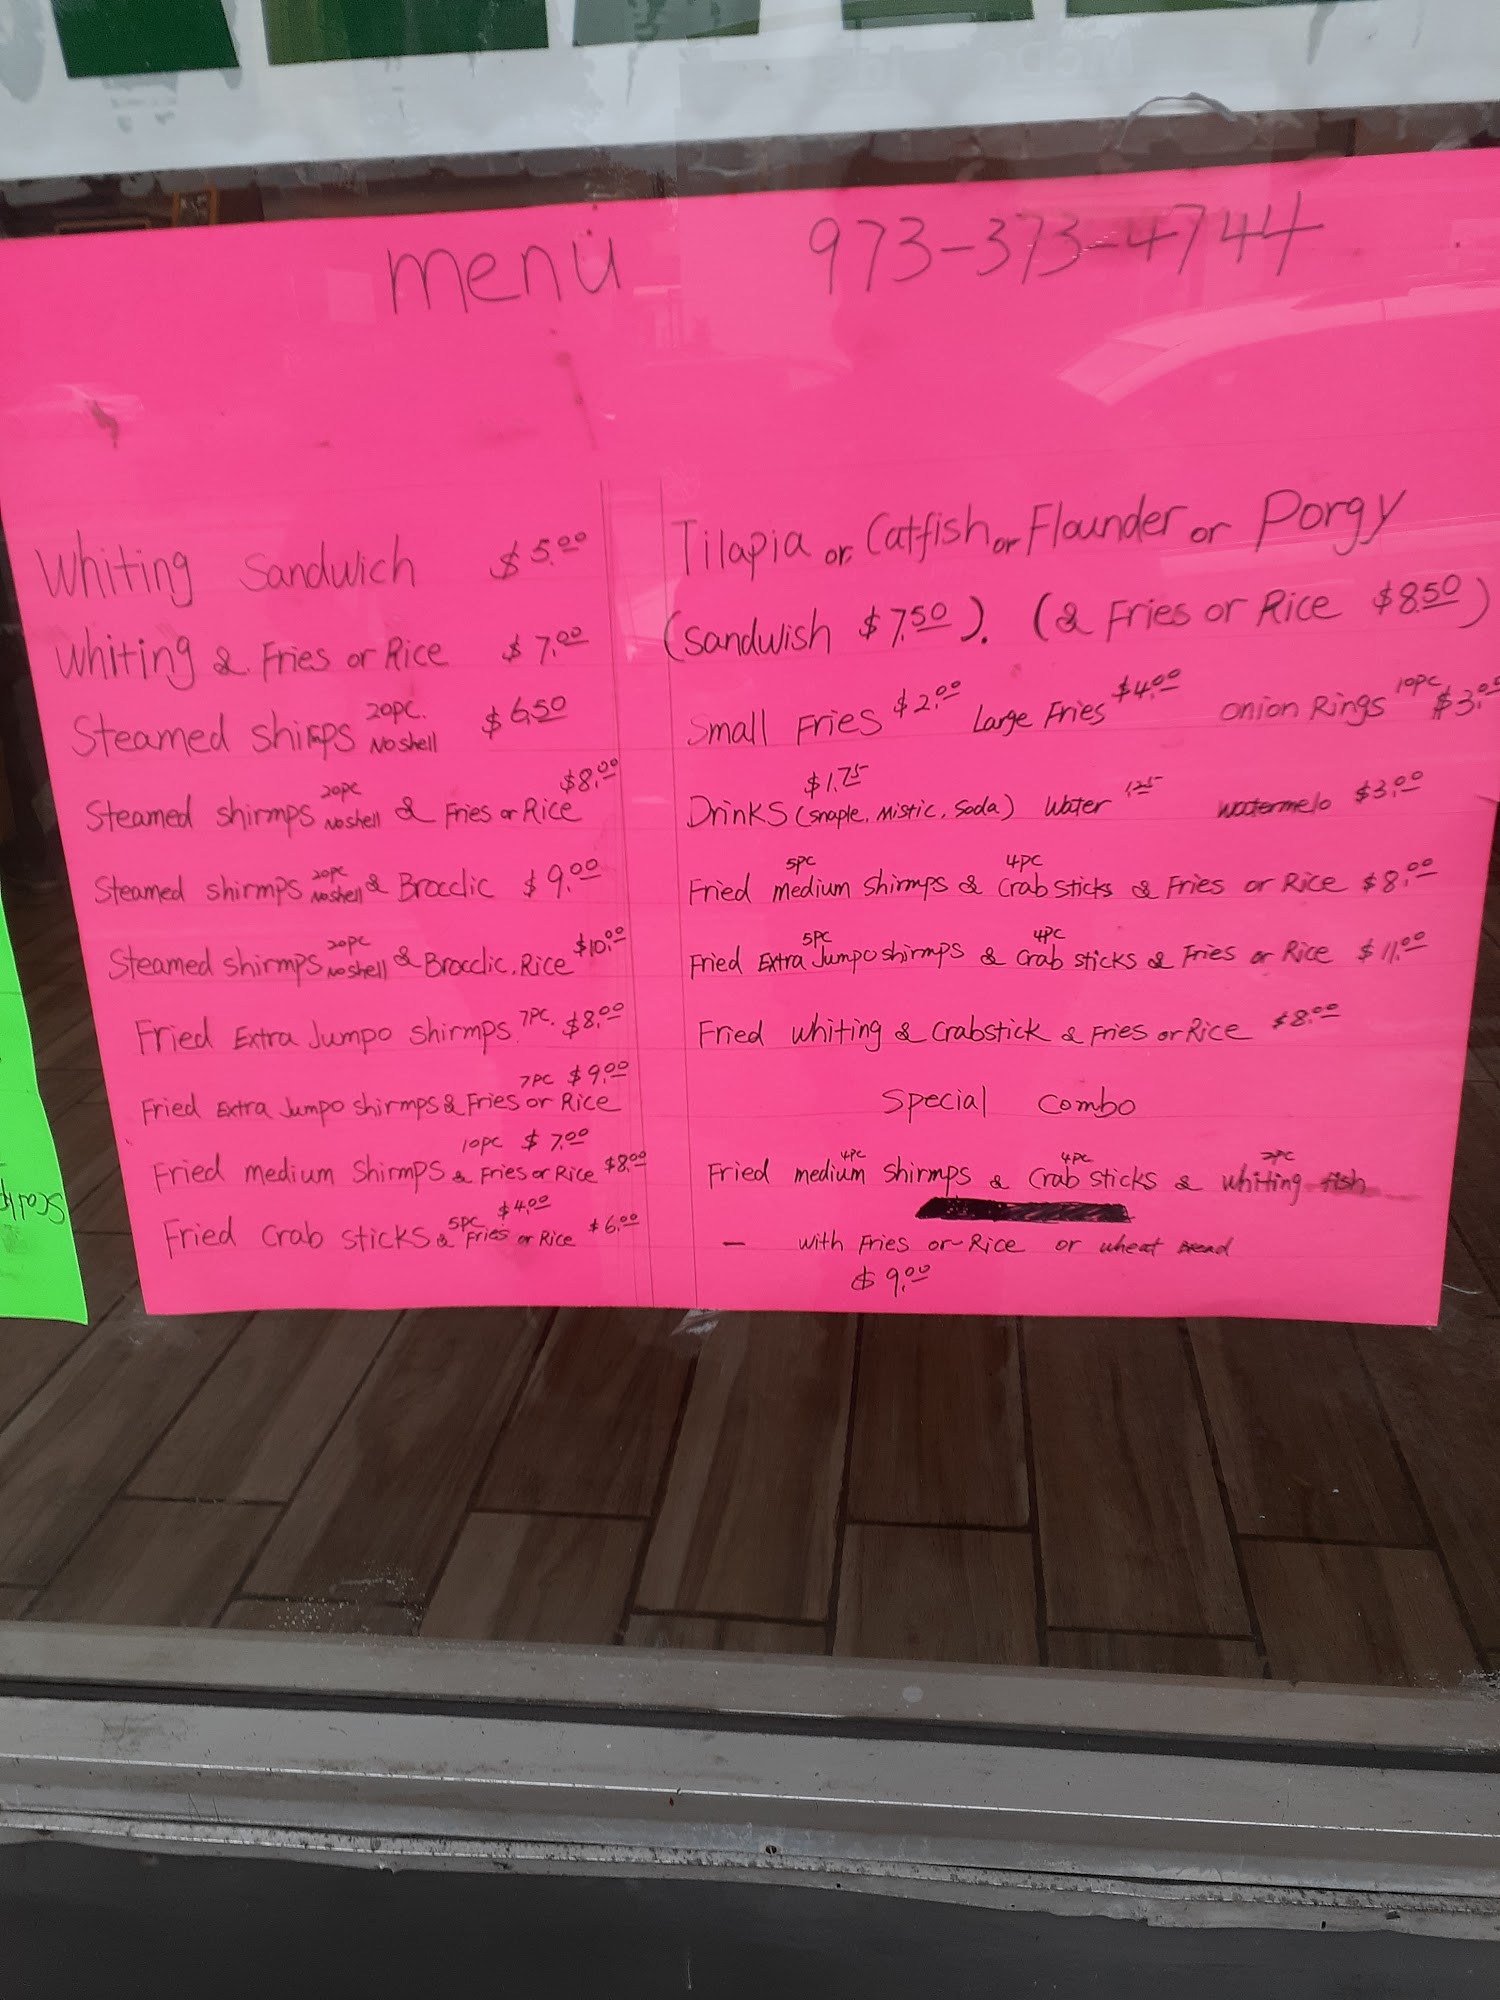 menu 973-373-4744
Whiting Sandwich $5.00
Whiting & Fries or Rice $7.00
Steamed shirmps 20pc. No shell $6.50
Steamed shirmps 20pc No shell & Fries or Rice $8.00
Steamed shirmps 20pc No shell & Brocclic $9.00
Steamed shirmps 20pc No shell & Brocclic. Rice $10.00
Fried Extra Jumpo shirmps 7pc. $8.00
7pc $9.00
Fried Extra Jumpo shirmps & Fries or Rice
10pc $7.00
Fried medium shirmps & Fries or Rice $8.00
5pc $4.00
Fried Crab sticks & Fries or Rice $6.00
Tilapia or Catfish or Flounder or Porgy
(Sandwish $7.50). (& Fries or Rice $8.50)
Small Fries $2.00 Large Fries $4.00 Onion Rings 10pc $3.00
$1.75
Drinks (Snaple, Mistic, Soda) Water 1.25 watermelo $3.00
5pc 4pc
Fried medium shirmps & Crab sticks & Fries or Rice $8.00
5pc 4pc
Fried Extra Jumpo shirmps & Crab sticks & Fries or Rice $11.00
Fried whiting & Crabstick & Fries or Rice $8.00
Special Combo
4pc 4pc 2pc
Fried medium shirmps & Crab sticks & whiting fish
- with Fries or Rice or wheat bread
$9.00